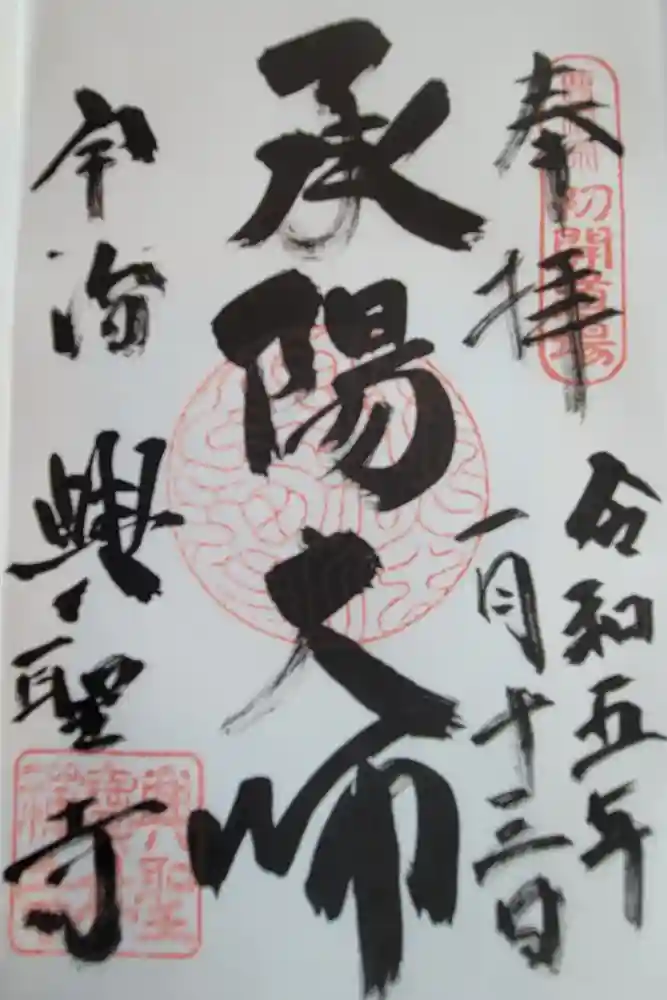 奉拝
初開道場
令和五年
一月十三日
承陽大師
宇治
興聖寺